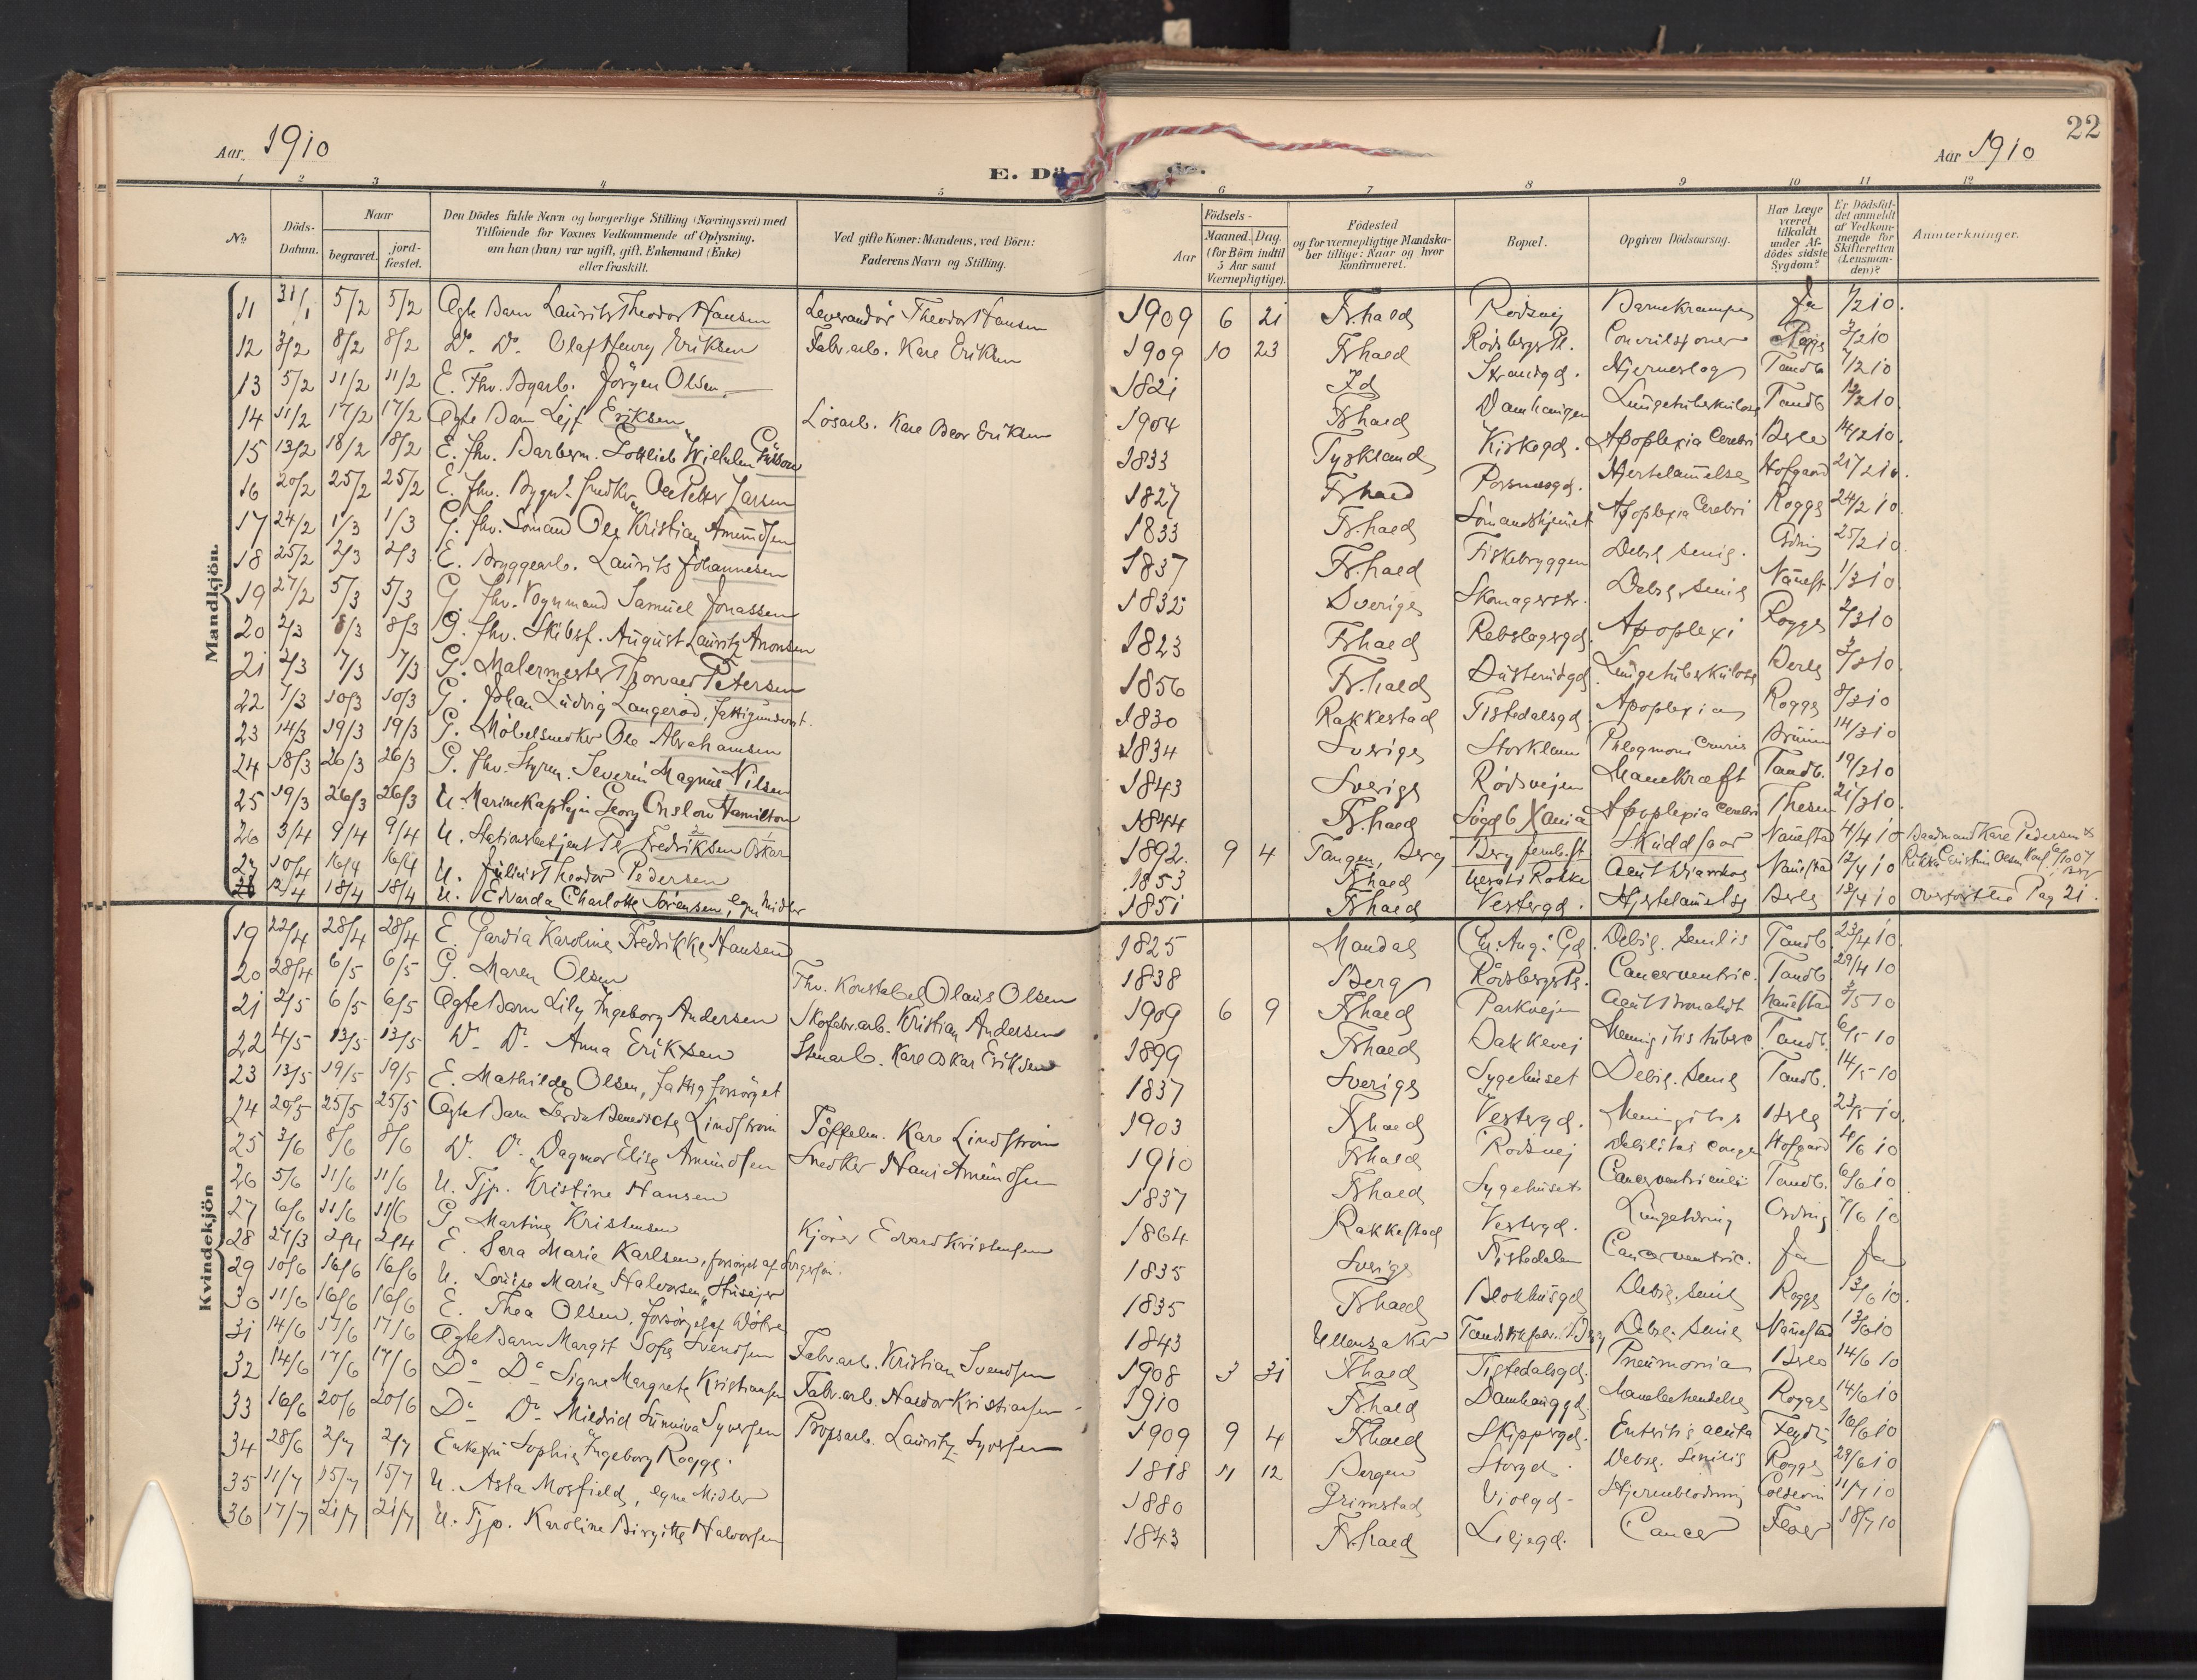 22
Aar. 1910
Aar 1910
E. Dö
1 2 3 4 5 6 7 8 9 10 11 12
No
Döds-Datum.
Naar
begravet.
jord-fæstet.
Den Dödes fulde Navn og borgerlige Stilling (Næringsvei) med
Tilföiende for Voxnes Vedkommende af Oplysning,
om han (hun) var ugift, gift, Enkemand (Enke)
eller fraskilt.
Ved gifte Koner: Mandens, ved Börn:
Faderens Navn og Stilling.
Födsels-
Aar
Maaned. Dag.
(for Börn indtil
5 Aar samt
Værnepligtige).
Födested
og for værnepligtige Mandska-
ber tillige: Naar og hvor
Konfirmeret.
Bopæl.
Opgiven Dödsaarsag.
Har Læge
været
tilkaldt
under Af-
dödes sidste
Sygdom?
Er Dödsfal-
det anmeldt
af Vedkom-
mende for
Skifteretten
(Lensman-
den)?
Anmærkninger.
Mandkjön.
11 31/1 5/2 5/2 Ægte Barn Laurits Theodor Hansen Leverandör Theodor Hansen 1909 6 21 Fr.hald Rödsvej Barnekrampe Ja 1/2 10.
12 3/2 8/2 8/2 Do Do Olaf Henry Eriksen Fabr.arb. Karl Eriksen 1909 10 23 Frhald Rödsbergs Pl. Roggs 3/2 10
13 5/2 11/2 11/2 E. Fhv. Bgarb. Jörgen Olsen 1821 Id Strandgd. Hjerneslag Tandb 7/2 10
14 11/2 17/2 17/2 Ægte Barn Lejf Eriksen Lösarb. Karl Eriksen 1904 Frhald Damhaugen Lungetuberkulose Tandb 12/2 10.
15 13/2 18/2 18/2 E. fhv. Barberm. Gottlieb Wilhelm 1833 Tyskland Kirkegd. Apoplexia Cerebri 14/2 10.
16 20/2 25/2 25/2 E. fhv. Snedker Ole Petter Larsen 1827 Frhald Hjertelammelse Hofgaard 21/2 10.
17 24/2 1/3 1/3 G. fhv. Sömand Ole Kristian Amundsen 1833 Fr.hald Sömandshjemmet Apoplexia Cerebri Roggs 24/2 10.
18 25/2 2/3 2/3 E. Bryggearb. Laurits Johannesen 1837 Fr.hald Fiskebryggen Debil. senil. 25/2 10.
19 27/2 5/3 5/3 G. fhv. Vognmand Samuel Jonassen 1832 Sverige Skomagerstr. Debil. senil 1/3 10.
20 2/3 8/3 8/3 G. fhv. Skibsf. August Lauritz Aronsen 1823 Frhald Rebslagergd. Apoplexi Roggs 2/3 10
21 2/3 7/3 7/3 G. Malermester Thorvald Petersen 1856 Fr.hald Lungetuberkulose 3/3 10.
22 7/3 10/3 10/3 G. Johan Ludvig Langeröd, fattigunderst. 1830 Rakkestad Tistedalsgd. Apoplexia Roggs 8/3 10
23 14/3 19/3 19/3 G. Möbelsnedker Ole Abrahamsen 1834 Sverige Phlegmone Cruris 14/3 10
24 18/3 26/3 26/3 G. fhv. Styrm. Severin Magnus Nilsen 1843 Sverige Rödsvejen Mavekræft Tandb. 19/3 10
25 19/3 26/3 26/3 U. Marinekaptejn Georg Onslow Hamilton 1844 Fr.hald Apoplexia Cerebri Thesen 21/3 10.
26 3/4 9/4 9/4 U. Stationsbetjent Fredriksen Oskar 1892. 9 4 Tangen, Berg Berg jernb.st Skuddsaar 4/4 10
27 10/4 16/4 16/4 U. Julius Theodor Pedersen 1853 Frhald Rokke 12/4 10
12/4 18/4 18/4 U. Edvarda Charlotte Sörensen, egne Midler 1851 Frhald Vestergd. Hjertelammelse 18/4 10 Overfört til Pag 21.
Kvindekjön
19 22/4 28/4 28/4 E. Karoline Fredrikke Hansen 1825 Mandal Chr. Aug. Gd. Debil. senilis Tandb. 23/4 10.
20 28/4 6/5 6/5 G. Maren Olsen Fhv. Konstabel Olaus Olsen 1838 Berg Rödsbergs Pl. Cancer ventric. Tandb. 29/4 10
21 2/5 6/5 6/5 Ægte Barn Lily Ingeborg Andersen Skofabr.arb. Kristian Andersen 1909 6 9 Frhald Parkvejen 3/5 10
22 4/5 13/5 13/5 Do Do Anna Eriksen Stenarb. Karl Oskar Eriksen 1899 Frhald Bakkevej Tandb. 6/5 10
23 13/5 19/5 19/5 E. Mathilde Olsen, fattigforsörget 1837 Sverige Sygehuset Debil. senil Tandb. 14/5 10
24 20/5 25/5 25/5 Ægte Barn Lindström Töffelm. Karl Lindström 1903 Frhald Vestergd. Meningitis 23/5 10.
25 3/6 8/6 8/6 Do Do Dagmar Elise Amundsen Snedker Hans Amundsen 1910 Frhald Rödsvej Hofgaard 4/6 10
26 5/6 11/6 11/6 U. Tjp. Kristine Hansen 1837 Frhald Sygehuset Cancer ventriculi Tandb. 6/6 10
27 6/6 11/6 11/6 G. Martine Kristensen Kjörer Edvard Kristensen 1864 Rakkestad Vestergd. 7/6 10
28 27/3 2/4 2/4 E. Sara Marie Karlsen, forsörget af 1835 Sverige Tistedalen Cancer ventric. Ja Ja
29 10/6 16/6 16/6 U. Louise Marie Halvorsen, Husejer 1835 Frhald Blokhusgd Debil. senil Roggs 13/6 10.
30 11/6 16/6 16/6 E. Thea Olsen, forsörget af Döttre 1843 Ullensaker Debil. senil 13/6 10
31 14/6 17/6 17/6 Ægte Barn Margit Sofie Svendsen Fabr.arb. Kristian Svendsen 1908 3 31 Frhald Tistedalsgd. Pneumonia 14/6 10
32 14/6 17/6 17/6 Do Do Signe Margrete Kristiansen Fabr.arb. Haldor Kristiansen 1910 Frhald Roggs 14/6 10
33 16/6 20/6 20/6 Do Do Mildrid Sunniva Syversen Propsarb. Lauritz Syversen 1909 9 4 Frhald Skippergd. Entritis acuta 16/6 10
34 28/6 2/7 2/7 Enkefru Sophie Ingeborg Rogge. 1818 11 12 Bergen Storgd. Debil. Senilis Roggs 29/6 10
35 11/7 15/7 15/7 U. Asta Mosfield, egne Midler 1880 Grimstad Violgd. Hjerneblödning 11/7 10
36 17/7 21/7 21/7 U. Tjp. Karoline Birgitte Halvorsen 1843 Fr.hald Liljegd. Cancer 18/7 10